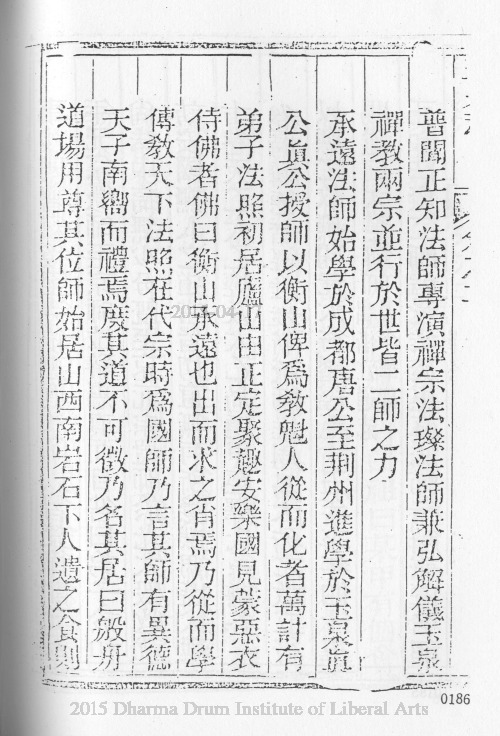 普聞正知法師專演禪宗法璨法師兼弘解儀玉泉
禪教兩宗並行於世皆二師之力
承遠法師始學於成都唐公至荆州進學於玉泉眞
公眞公授師以衡山俾爲教魁人從而化者萬計有
弟子法照初居廬山由正定聚趣安樂國見蒙惡衣
侍佛者佛曰衡山承遠也出而求之肖焉乃從而學
傳敎天下法照在代宗時爲國師乃言其師有異德
天子南嚮而禮焉度其道不可徵乃名其居曰般舟
道場用尊其位師始居山西南岩石下人遺之食則
0186
2015 Dharma Drum Institute of Liberal Arts